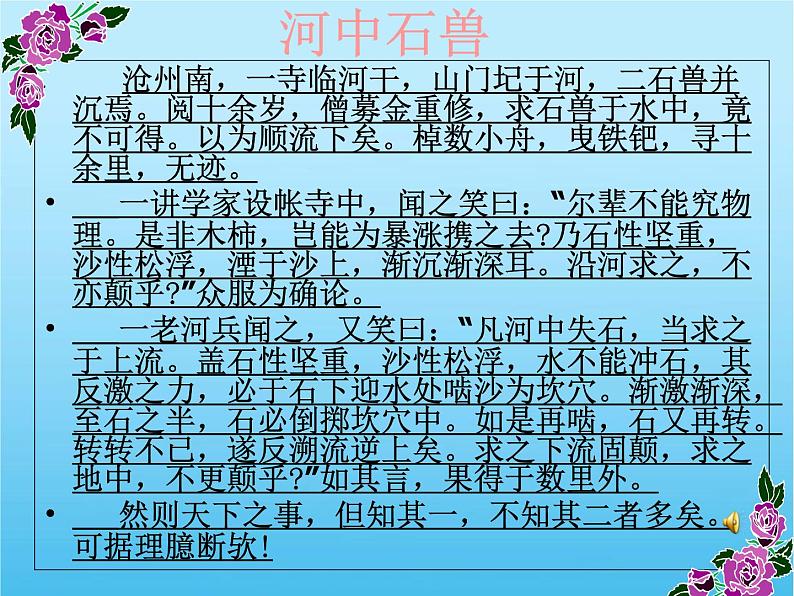 河中石兽
沧州南，一寺临河干，山门圮于河，二石兽并
沉焉。阅十余岁，僧募金重修，求石兽于水中，竟
不可得。以为顺流下矣。棹数小舟，曳铁钯，寻十
余里，无迹。
• 一讲学家设帐寺中，闻之笑曰：“尔辈不能究物
理。是非木杮，岂能为暴涨携之去?乃石性坚重，
沙性松浮，湮于沙上，渐沉渐深耳。沿河求之，不
亦颠乎?”众服为确论。
• 一老河兵闻之，又笑曰：“凡河中失石，当求之
于上流。盖石性坚重，沙性松浮，水不能冲石，其
反激之力，必于石下迎水处啮沙为坎穴。渐激渐深，
至石之半，石必倒掷坎穴中。如是再啮，石又再转。
转转不已，遂反溯流逆上矣。求之下流固颠，求之
地中，不更颠乎?”如其言，果得于数里外。
• 然则天下之事，但知其一，不知其二者多矣。
可据理臆断欤!